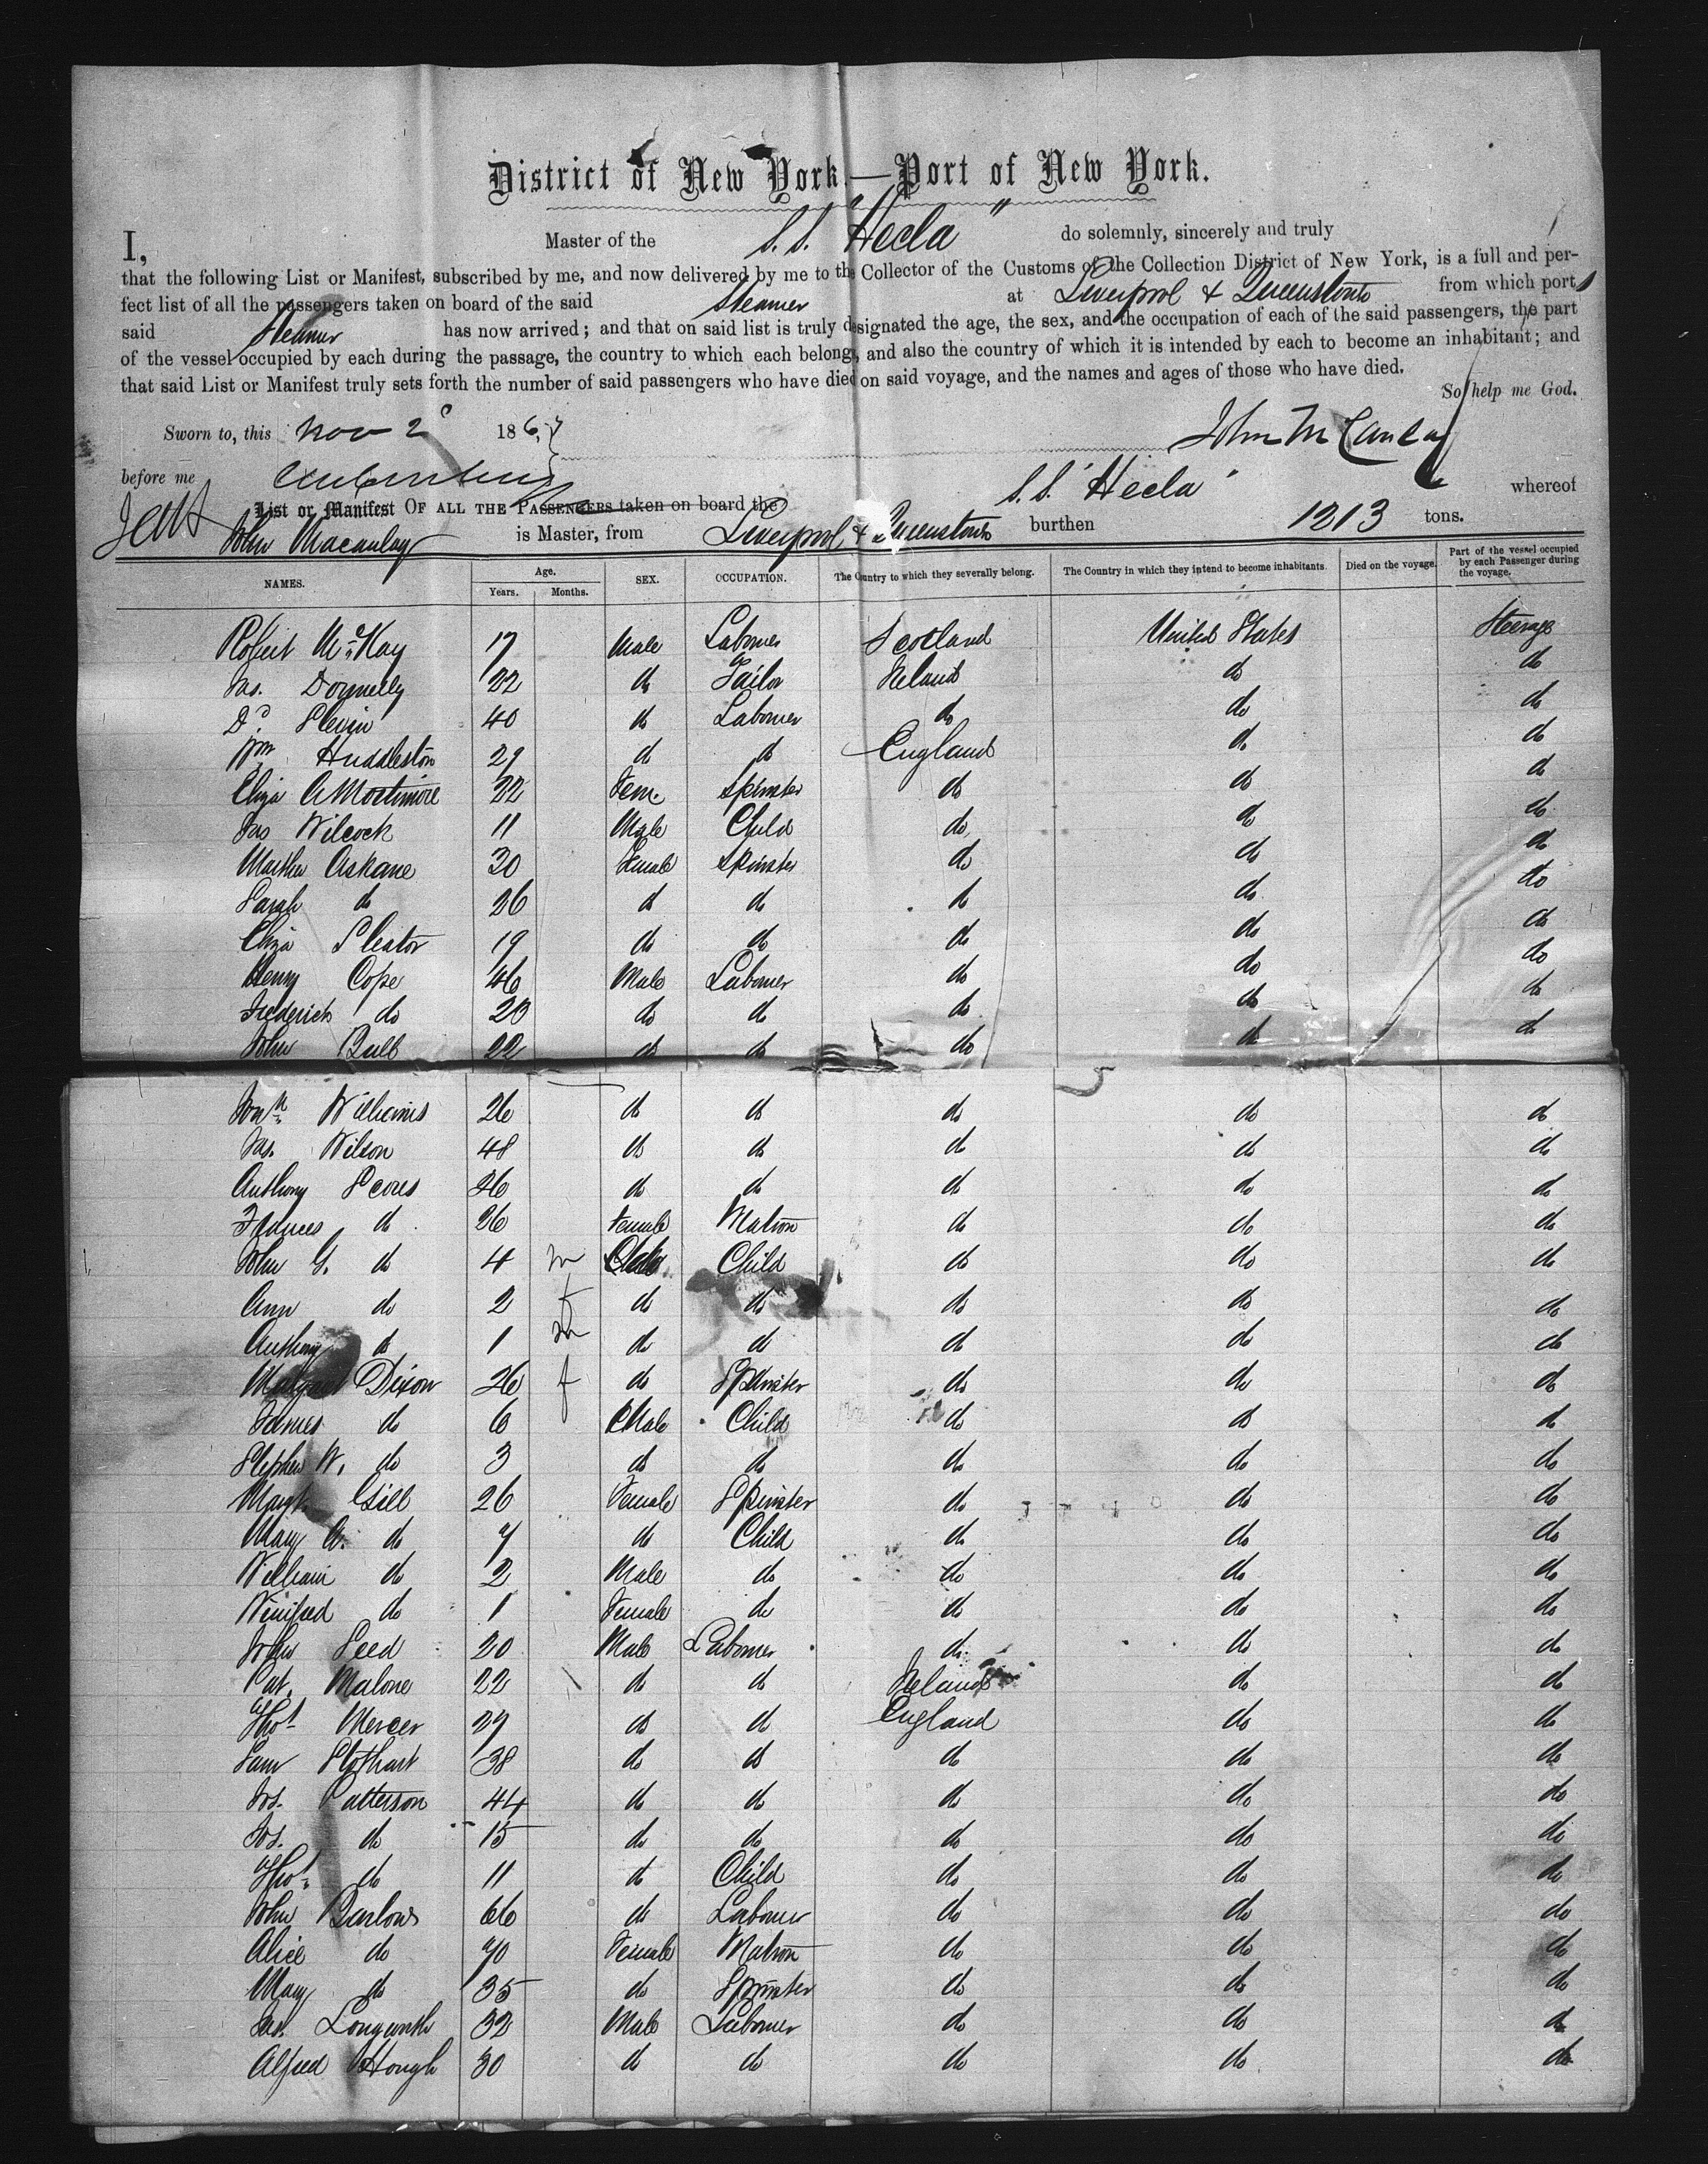 District of New York.—Port of New York.
I, Master of the S.S. "Hecla" do solemnly, sincerely and truly
that the following List or Manifest, subscribed by me, and now delivered by me to the Collector of the Customs of the Collection District of New York, is a full and per-
fect list of all the passengers taken on board of the said Steamer at Liverpool & Queenstown from which ports
said Steamer has now arrived; and that on said list is truly designated the age, the sex, and the occupation of each of the said passengers, the part
of the vessel occupied by each during the passage, the country to which each belongs, and also the country of which it is intended by each to become an inhabitant; and
that said List or Manifest truly sets forth the number of said passengers who have died on said voyage, and the names and ages of those who have died.
So help me God.
Sworn to, this Nov 2 1867
before me
List or Manifest OF ALL THE PASSENGERS taken on board the S.S. "Hecla" whereof
John Macaulay is Master, from Liverpool & Queenstown burthen 1213 tons.
NAMES. Age. Years. Months. SEX. OCCUPATION. The Country to which they severally belong. The Country in which they intend to become inhabitants. Died on the voyage. Part of the vessel occupied by each Passenger during the voyage.
Robert McKay 17 Male Laborer Scotland United States Steerage
Jas. Donnelly 22 do Tailor Ireland do do
Do. Slevin 40 do Laborer do do do
Wm Huddleston 29 do do England do do
Eliza A Mortimore 22 Fem. Spinster do do do
Jas Wilcock 11 Male Child do do do
Martha Askane 30 Female Spinster do do do
Sarah do 26 do do do do do
Eliza Sleator 19 do do do do do
Henry Cope 46 Male Laborer do do do
Frederick do 20 do do do do do
John Bull 22 do do do do do
Williams 26 do do do do do
Jas. Wilson 48 do do do do do
Anthony 26 do do do do do
Frances do 26 Female Matron do do do
John G. do 4 m Child do do do
Ann do 2 f do do do do do
Anthony do 1 m do do do do do
Margaret Dixon 26 f do Spinster do do do
James do 6 Male Child do do do
Stephen W. do 3 do do do do do
Margt. Gill 26 Female Spinster do do do
Mary A. do 7 do Child do do do
William do 2 Male do do do do
Winifred do 1 Female do do do do
John Seed 20 Male Laborer do do do
Pat. Malone 22 do do Ireland do do
Thos Mercer 27 do do England do do
Sam Stothart 38 do do do do do
Jos. Patterson 44 do do do do do
Jos. do 15 do do do do do
Thos. do 11 do Child do do do
John Barlow 66 do Laborer do do do
Alice do 70 Female Matron do do do
Mary do 35 do Spinster do do do
Jas. Longworth 32 Male Laborer do do do
Alfred Hough 30 do do do do do